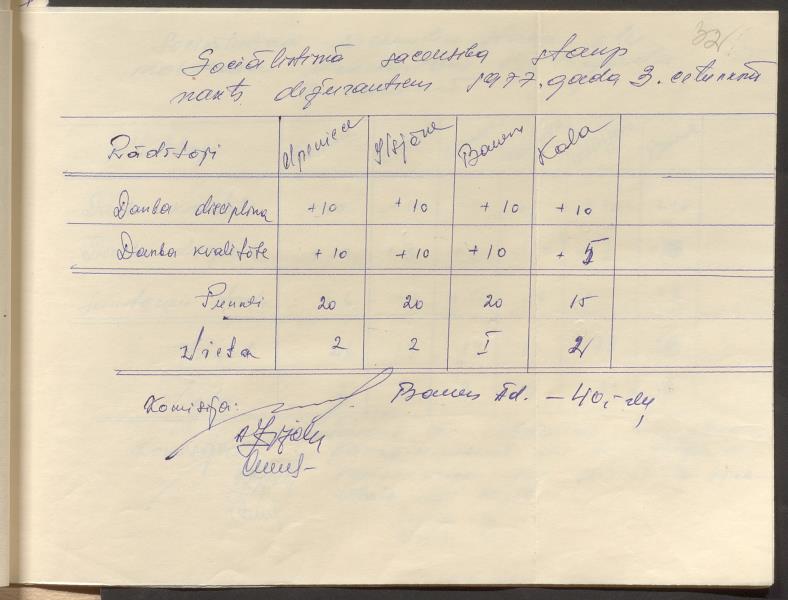 32
Sociālistiskā sacensība starp
nakts dežurantiem 1977. gada 3. ceturksnī
Rādītāji Upeniece Bauers Kola
Darba disciplina +10 +10 +10 +10
Darba kvalitāte +10 +10 +10 +5
Punkti 20 20 20 15
Vieta 2 2 I 2
Komisija: Bauers Ad. – 40,-